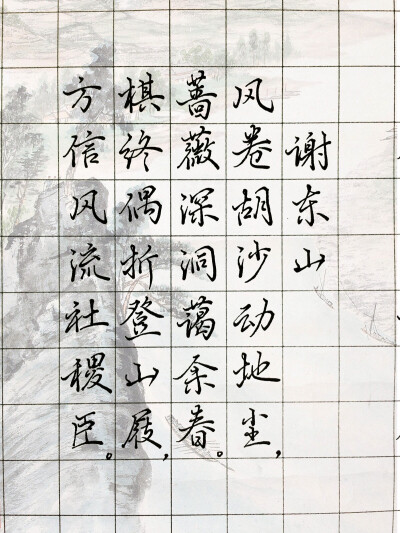 谢东山
风卷胡沙动地尘，
蔷薇深洞蔼余春。
棋终偶折登山屐，
方信风流社稷臣。